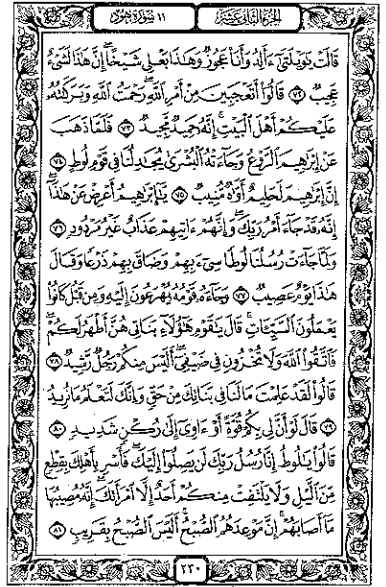 ١١ سورة هود
الجزء الثاني عشر
قَالَتْ يَٰوَيْلَتَىٰٓ ءَأَلِدُ وَأَنَا۠ عَجُوزٌ وَهَٰذَا بَعْلِى شَيْخًا إِنَّ هَٰذَا لَشَىْءٌ
عَجِيبٌ ٧٢ قَالُوٓا۟ أَتَعْجَبِينَ مِنْ أَمْرِ ٱللَّهِ رَحْمَتُ ٱللَّهِ وَبَرَكَٰتُهُۥ
عَلَيْكُمْ أَهْلَ ٱلْبَيْتِ إِنَّهُۥ حَمِيدٌ مَّجِيدٌ ٧٣ فَلَمَّا ذَهَبَ
عَنْ إِبْرَٰهِيمَ ٱلرَّوْعُ وَجَآءَتْهُ ٱلْبُشْرَىٰ يُجَٰدِلُنَا فِى قَوْمِ لُوطٍ ٧٤
إِنَّ إِبْرَٰهِيمَ لَحَلِيمٌ أَوَّٰهٌ مُّنِيبٌ ٧٥ يَٰٓإِبْرَٰهِيمُ أَعْرِضْ عَنْ هَٰذَآ
إِنَّهُۥ قَدْ جَآءَ أَمْرُ رَبِّكَ وَإِنَّهُمْ ءَاتِيهِمْ عَذَابٌ غَيْرُ مَرْدُودٍ ٧٦
وَلَمَّا جَآءَتْ رُسُلُنَا لُوطًا سِىٓءَ بِهِمْ وَضَاقَ بِهِمْ ذَرْعًا وَقَالَ
هَٰذَا يَوْمٌ عَصِيبٌ ٧٧ وَجَآءَهُۥ قَوْمُهُۥ يُهْرَعُونَ إِلَيْهِ وَمِن قَبْلُ كَانُوا۟
يَعْمَلُونَ ٱلسَّيِّـَٔاتِ قَالَ يَٰقَوْمِ هَٰٓؤُلَآءِ بَنَاتِى هُنَّ أَطْهَرُ لَكُمْ
فَٱتَّقُوا۟ ٱللَّهَ وَلَا تُخْزُونِ فِى ضَيْفِىٓ أَلَيْسَ مِنكُمْ رَجُلٌ رَّشِيدٌ ٧٨
قَالُوا۟ لَقَدْ عَلِمْتَ مَا لَنَا فِى بَنَاتِكَ مِنْ حَقٍّ وَإِنَّكَ لَتَعْلَمُ مَا نُرِيدُ
٧٩ قَالَ لَوْ أَنَّ لِى بِكُمْ قُوَّةً أَوْ ءَاوِىٓ إِلَىٰ رُكْنٍ شَدِيدٍ ٨٠
قَالُوا۟ يَٰلُوطُ إِنَّا رُسُلُ رَبِّكَ لَن يَصِلُوٓا۟ إِلَيْكَ فَأَسْرِ بِأَهْلِكَ بِقِطْعٍ
مِّنَ ٱلَّيْلِ وَلَا يَلْتَفِتْ مِنكُمْ أَحَدٌ إِلَّا ٱمْرَأَتَكَ إِنَّهُۥ مُصِيبُهَا
مَآ أَصَابَهُمْ إِنَّ مَوْعِدَهُمُ ٱلصُّبْحُ أَلَيْسَ ٱلصُّبْحُ بِقَرِيبٍ ٨١
٢٣٠